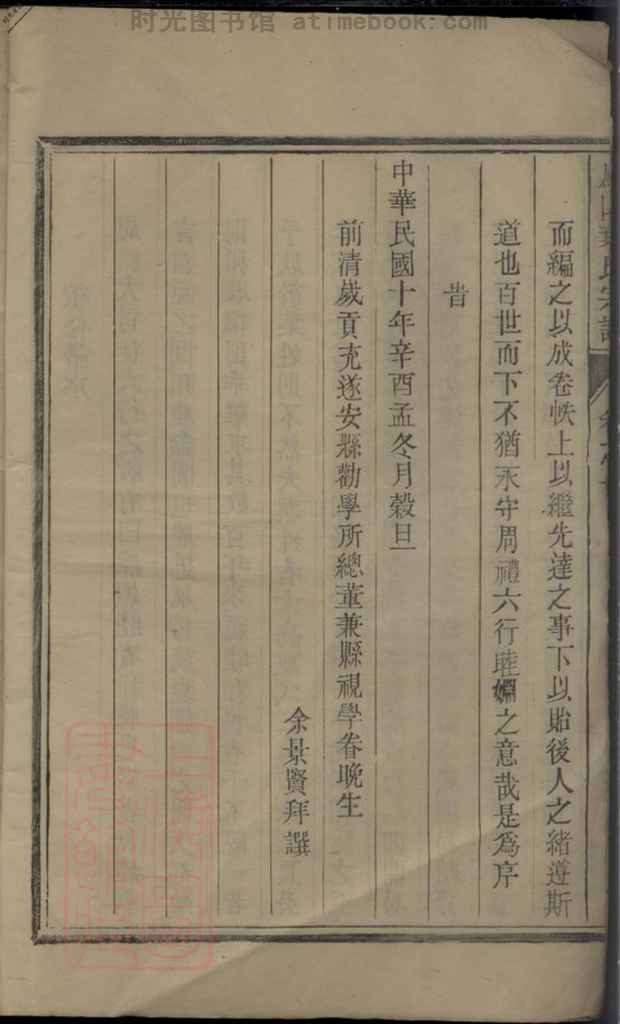 时光图书馆 atimebook.com
氏宗譜
而編之以成卷帙上以繼先達之事下以貽後人之緒遵斯
道也百世而下不猶永守周禮六行睦婣之意哉是爲序
旹
中華民國十年辛酉孟冬月穀旦
前清歲貢充遂安縣勸學所總董兼縣視學眷晚生
余景賢拜譔